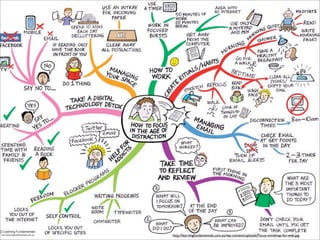 USE AN IN-TRAY
FOR INCOMING
PAPER
SPEND 10 MINS
EACH DAY
DECLUTTERING
CLEAR AWAY
ALL DISTRACTIONS
IF READING JUST
HAVE THE BOOK
IN FRONT OF YOU
DO 1 THING
MANAGING
YOUR SPACE
MOBILE
EMAIL
FACEBOOK
TV
SAY NO TO...
TAKE A DIGITAL
TECHNOLOGY DETOX
YES
SAY
YES TO...
EATING
SPENDING
TIME WITH
FAMILY &
FRIENDS
READING
A BOOK
HOW TO
WORK
USE
A
TIMER
WORK IN
FOCUSED
BURSTS
MINUTES
WORK
MINUTES
BREAK
AREA WITH
NO INTERNET
USE ONLY
A NOTEPAD
AND PEN
GET AWAY
FROM THE
COMPUTER
CREATE RITUALS/HABITS
MORNING
MEDITATE
READ
WRITE
MORNING
PAGES
SHOWER
HAVE A
HEALTHY
BREAKFAST
GO FOR
A WALK
BEDTIME
CLEAN
TOWEL
EMPTY
BATH
READ
STRETCH
REFOCUS
WALK
LOOK AT
WINDOW
HOW TO FOCUS
IN THE AGE OF
DISTRACTION
MANAGING
EMAIL
DISCONNECTION
TIMES
8pm-10am
CHECK EMAIL
AT SET POINTS
IN THE DAY
2-3 TIMES
PER DAY
TURN OFF
EMAIL ALERTS
HELP FOR
ADDICTS
Twitter
Facebook
BLOCKER PROGRAMS
FREEDOM
LOCKS
YOU OUT OF
THE INTERNET
SELF CONTROL
LOCKS YOU OUT
OF SPECIFIC SITES
WRITING PROGRAMS
WRITE
ROOM
TYPEWRITER
OMMWRITER
TAKE TIME
TO REFLECT
AND REVIEW
FIRST THING IN
THE MORNING
WHAT ARE
THE 3 MOST
IMPORTANT
THINGS TO
DO TODAY?
DON'T CHECK YOUR
EMAIL UNTIL YOU GET
THE TASK COMPLETE
AT THE END
OF THE DAY
WHAT
WORKED?
WHAT WILL
I FOCUS ON
TOMORROW?
WHAT
DID I DO?
WHAT CAN
BE IMPROVED?
Learning Fundamentals
http://learningfundamentals.com.au/wp-content/uploads/Focus-mindmap-for-web.jpg